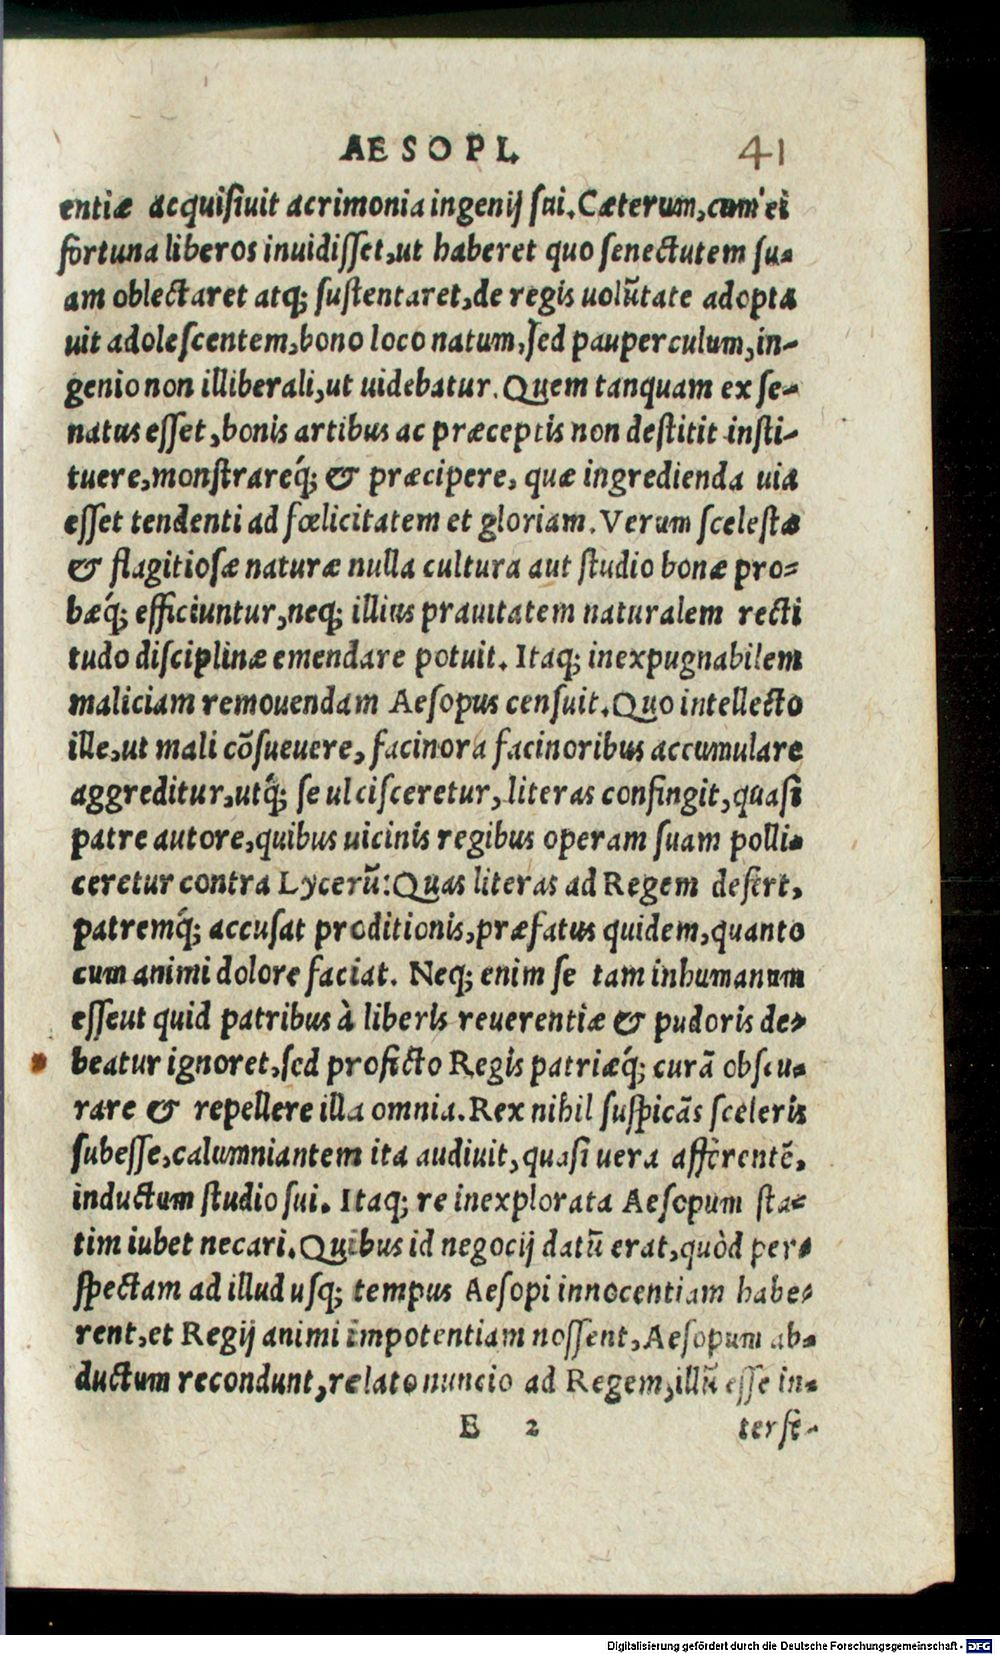 AESOPI.
41
entiæ acquisiuit acrimonia ingenij sui. Cæterum, cum ei
fortuna liberos inuidisset, ut haberet quo senectutem su-
am oblectaret atq; sustentaret, de regis uolũtate adopta
uit adolescentem, bono loco natum, sed pauperculum, in-
genio non illiberali, ut uidebatur. Quem tanquam ex se-
natus esset, bonis artibus ac præceptis non destitit insti-
tuere, monstrareq́; & præcipere, quæ ingredienda uia
esset tendenti ad fœlicitatem et gloriam. Verum scelestæ
& flagitiosæ naturæ nulla cultura aut studio bonæ pro-
bæq́; efficiuntur, neq; illius prauitatem naturalem recti
tudo disciplinæ emendare potuit. Itaq; inexpugnabilem
maliciam remouendam Aesopus censuit. Quo intellecto
ille, ut mali cõsueuere, facinora facinoribus accumulare
aggreditur, utq́; se ulcisceretur, literas confingit, quasi
patre autore, quibus uicinis regibus operam suam polli-
ceretur contra Lycerũ: Quas literas ad Regem defert,
patremq́; accusat proditionis, præfatus quidem, quanto
cum animi dolore faciat. Neq; enim se tam inhumanum
esse ut quid patribus à liberis reuerentiæ & pudoris de-
beatur ignoret, sed profecto Regis patriæq́; curã obscu-
rare & repellere illa omnia. Rex nihil suspicãs sceleris
subesse, calumniantem ita audiuit, quasi uera afferentẽ,
inductum studio sui. Itaq; re inexplorata Aesopum sta-
tim iubet necari. Quibus id negocij datũ erat, quòd per-
spectam ad illud usq; tempus Aesopi innocentiam habe-
rent, et Regij animi impotentiam nossent, Aesopum ab-
ductum recondunt, relato nuncio ad Regem, illũ esse in-
E 2
terfe-
Digitalisierung gefördert durch die Deutsche Forschungsgemeinschaft - DFG